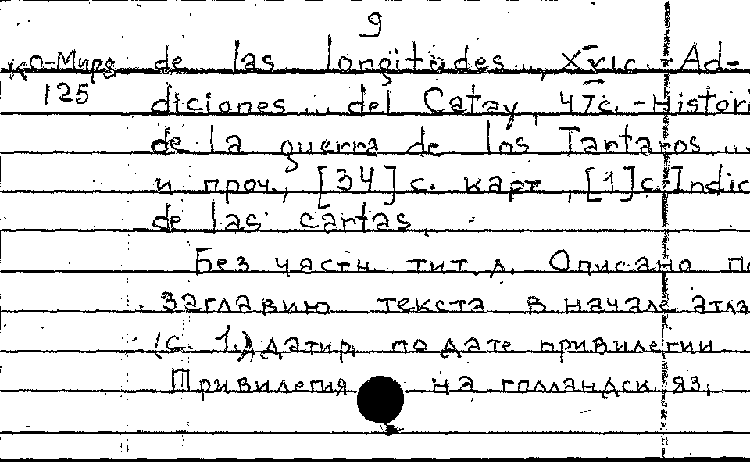 9
ко-Мирв de las longitudes..., XVIc. - Ad-
125 diciones... del Catay, 47c. - Histori
de la guerra de los Tartaros...
и проч., [34] с. карт, [1] с. Indic
de las cartas.
Без части тит. л. Описано по
заглавию текста в начале атла
(с. 1.) датир. по дате привилегии
Привилегия на голландск яз.